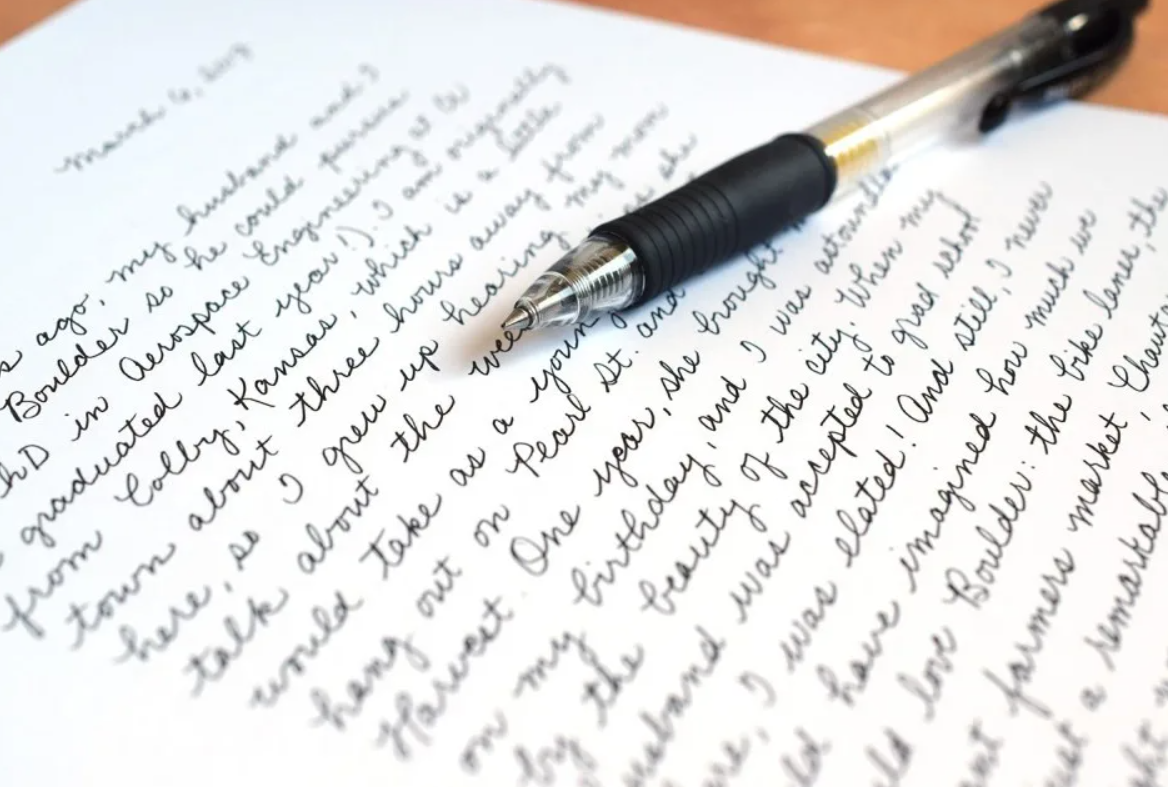 March 6, 2017
s ago, my husband and I
Boulder so he could pursue
PhD in Aerospace Engineering at CU
graduated last year!). I am originally
from Colby, Kansas, which is a little
town about three hours away from
here, so I grew up hearing my mom
talk about the she
would take as a young
hang out on Pearl St. and
Harvest. One year, she brought
on my birthday, and I was astounded
by the beauty of the city. When my
husband was accepted to grad school
I was elated! And still, I never
have imagined how much we
love Boulder: the bike lanes, the
farmers market,
a